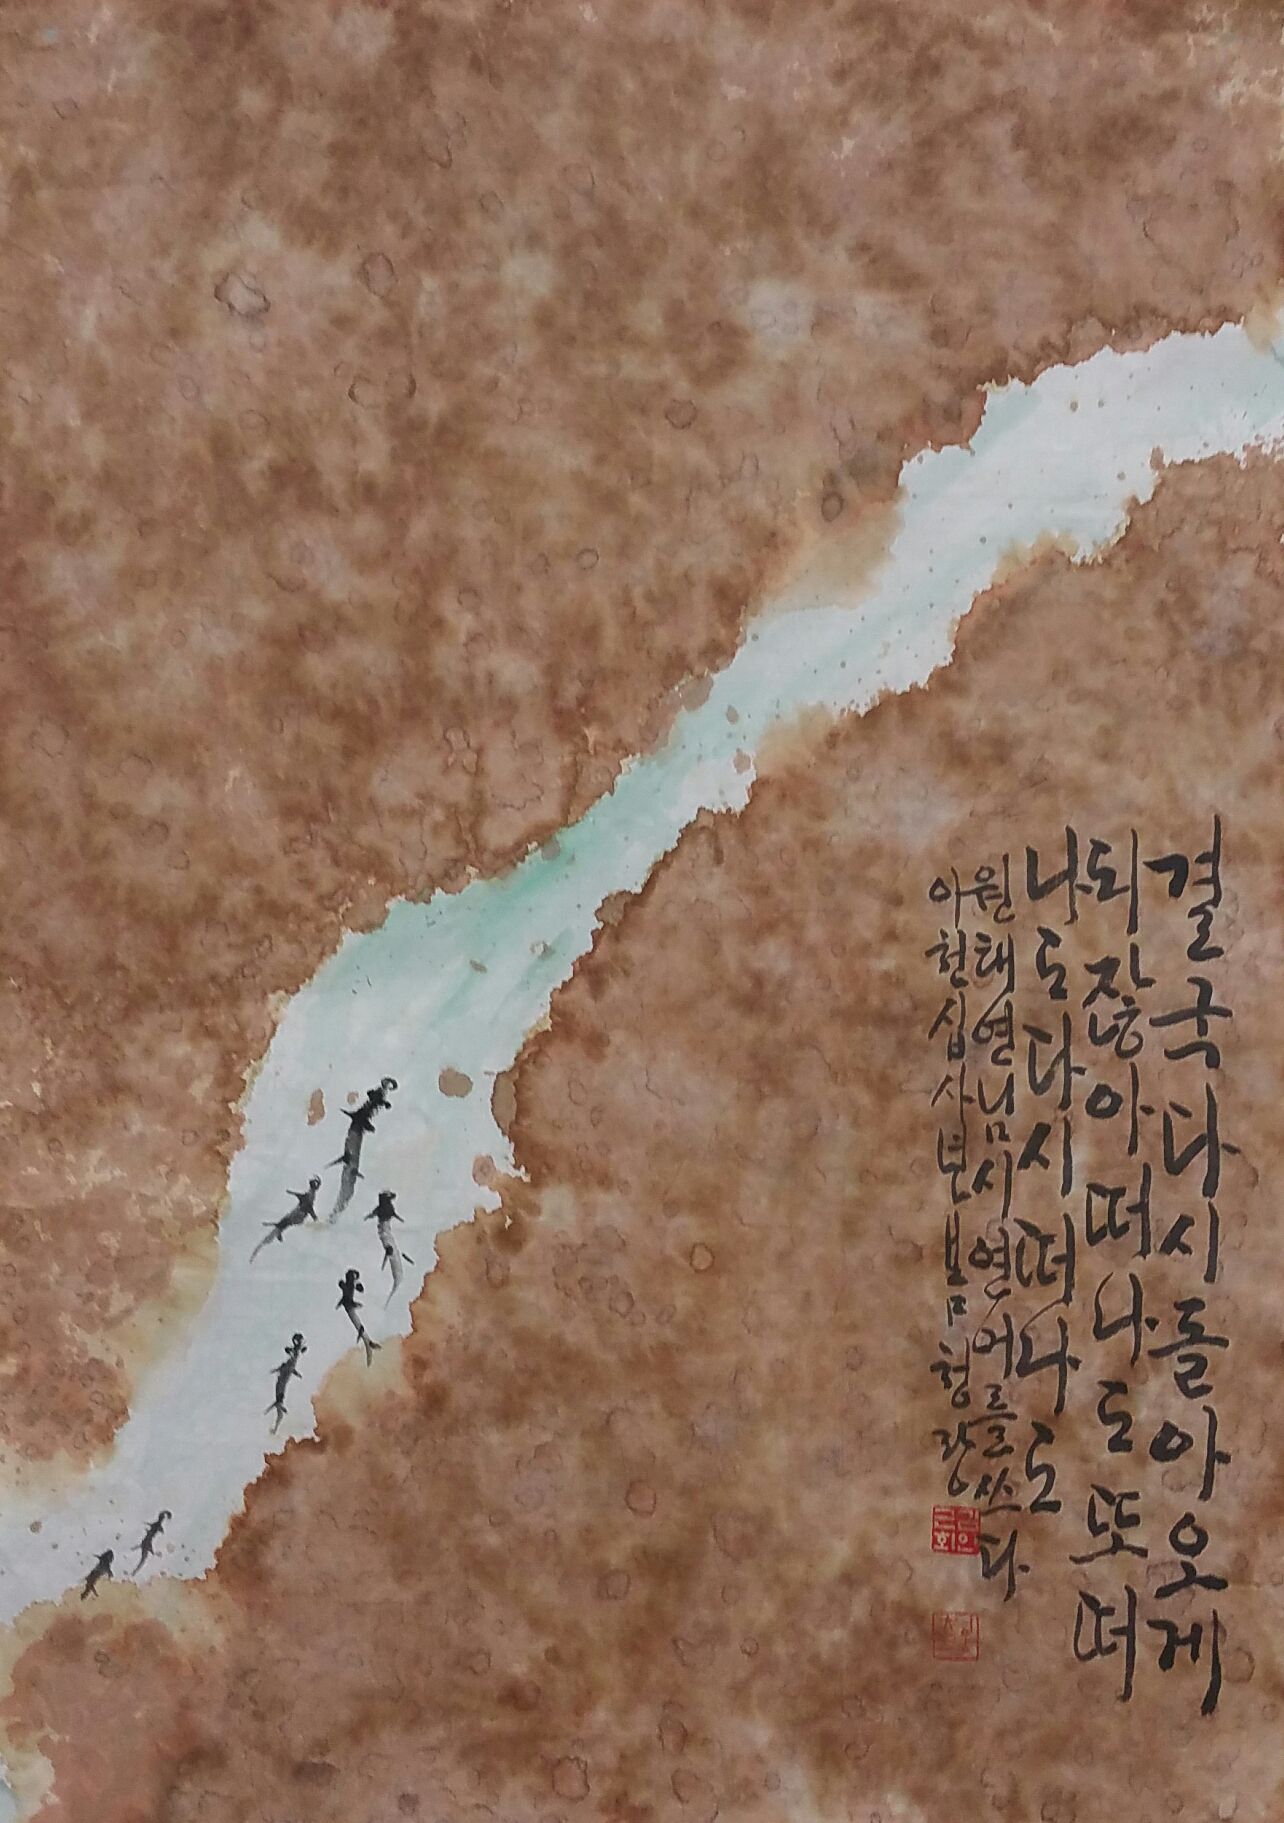 결국다시돌아오게
되잖아떠나도또떠
나도다시떠나도
원태연님시연어를쓰다
이천십사년봄청랑